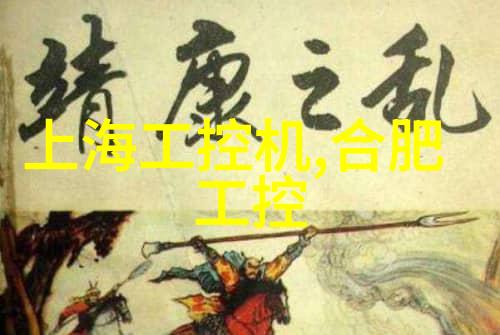 靖康之乱
上海工控机,合肥
工控